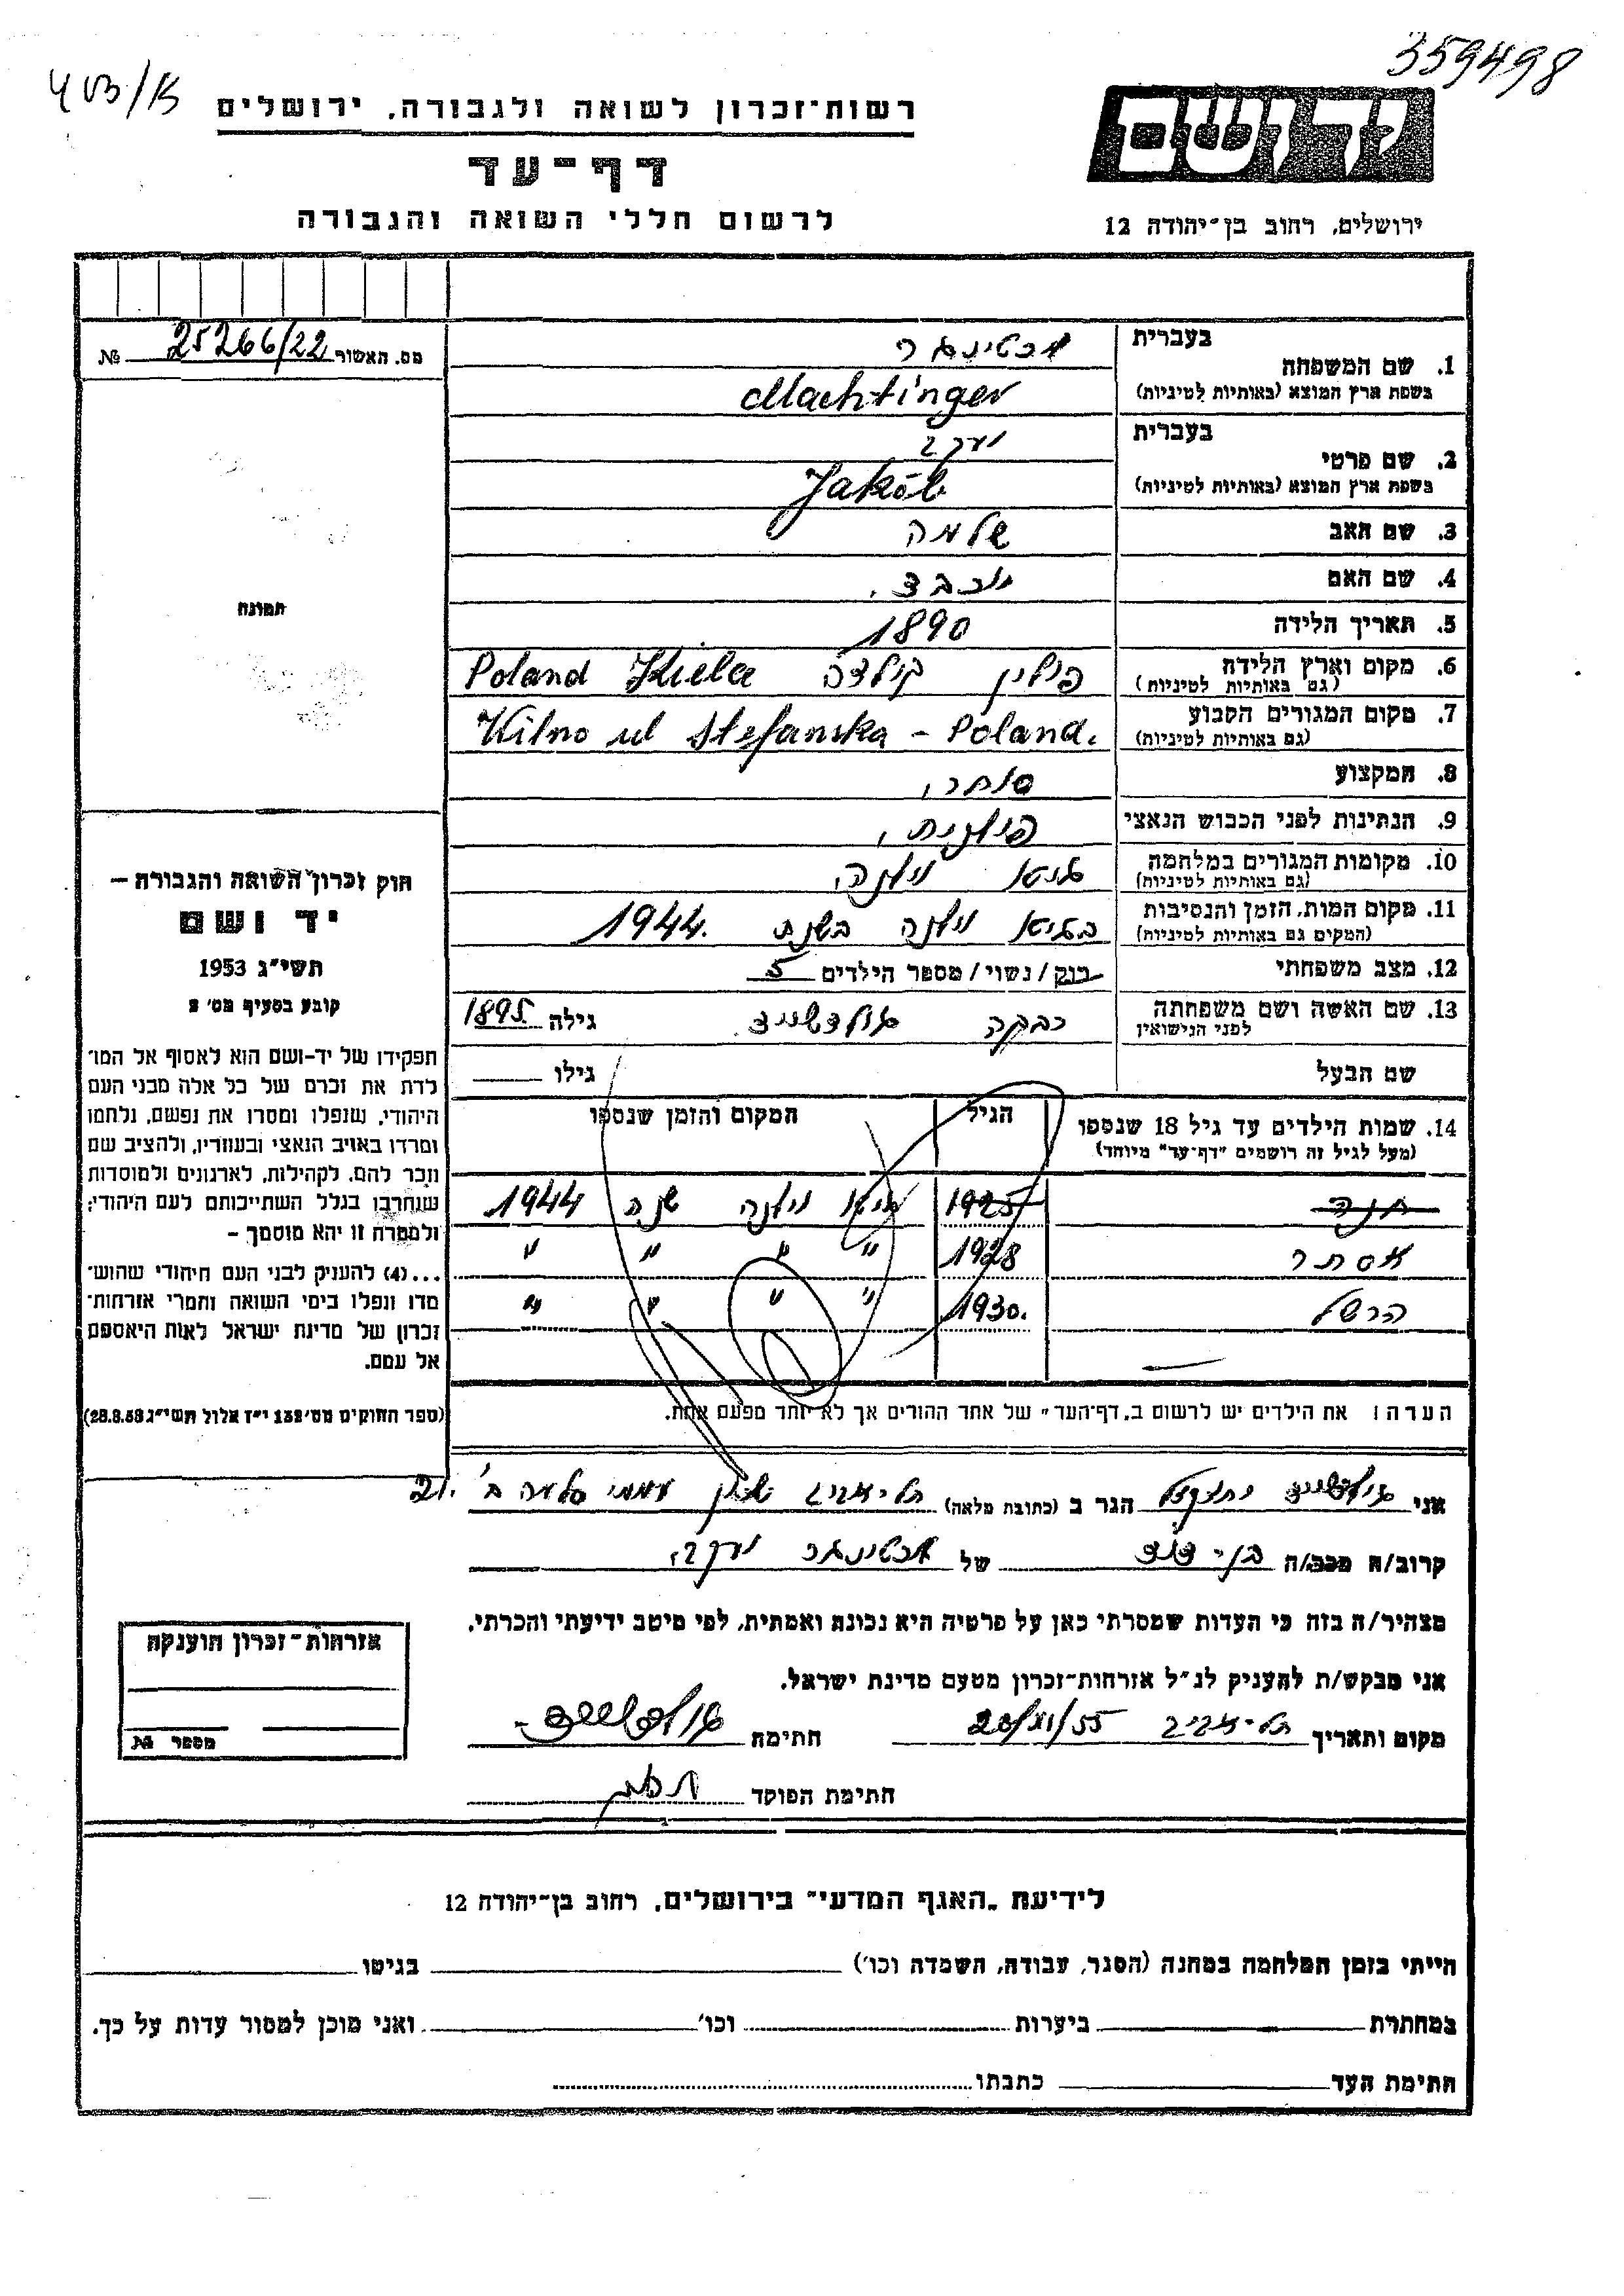 359498
רשות־זכרון לשואה ולגבורה, ירושלים
דף־עד
לרשום חללי השואה והגבורה
ידושם
ירושלים, רחוב בן־יהודה 12
מס. האשור 25266/22 №
בעברית
1. שם המשפחה
מכטינגר
בשפת ארץ המוצא (באותיות לטיניות) Machtinger
בעברית
2. שם פרטי
יעקב
בשפת ארץ המוצא (באותיות לטיניות) Jakób
3. שם האב שלמה
4. שם האם יוכבד.
5. תאריך הלידה 1890
6. מקום וארץ הלידה פולין קילצה Poland Kielce
(גם באותיות לטיניות)
7. מקום המגורים הקבוע Wilno ul Stefanska - Poland.
(גם באותיות לטיניות)
8. המקצוע סוחר,
9. הנתינות לפני הכבוש הנאצי פולנית,
10. מקומות המגורים במלחמה גיטו וילנה,
(גם באותיות לטיניות)
11. מקום המות, הזמן והנסיבות בגיטו וילנה בשנת 1944.
(המקום גם באותיות לטיניות)
12. מצב משפחתי רווק/נשוי/מספר הילדים 5
13. שם האשה ושם משפחתה רבקה גולדשייד גילה 1895
לפני הנישואין
שם הבעל גילו
14. שמות הילדים עד גיל 18 שנספו הגיל המקום והזמן שנספו
(מעל לגיל זה רושמים "דף־עד" מיוחד)
חנה 1925 גיטו וילנה שנה 1944
אסתר 1928 " " " "
הרשל 1930. " " " "
הערה! את הילדים יש לרשום ב„דף־העד" של אחד ההורים אך לא יותר מפעם אחת.
תמונה
חוק זכרון השואה והגבורה —
יד ושם
תשי"ג 1953
קובע בסעיף מס' 2
תפקידו של יד-ושם הוא לאסוף אל המו־
לדת את זכרם של כל אלה מבני העם
היהודי, שנפלו ומסרו את נפשם, נלחמו
ומרדו באויב הנאצי ובעוזריו, ולהציב שם
וזכר להם, לקהילות, לארגונים ולמוסדות
שנחרבו בגלל השתייכותם לעם היהודי;
ולמטרה זו יהא מוסמך —
...(4) להעניק לבני העם היהודי שהוש־
מדו ונפלו בימי השואה והמרי אזרחות־
זכרון של מדינת ישראל לאות היאספם
אל עמם.
(ספר החוקים מס' 132 י"ז אלול תשי"ג 28.8.53)
אני גולדשייד יחזקאל הגר ב (כתובת מלאה) תל־אביב שכון עממי סלמה ב' 21.
קרוב/ה מכב/ה בן־דוד של מכטינגר יעקב,
מצהיר/ה בזה כי העדות שמסרתי כאן על פרטיה היא נכונה ואמתית, לפי מיטב ידיעתי והכרתי.
אני מבקש/ת להעניק לנ"ל אזרחות־זכרון מטעם מדינת ישראל.
מקום ותאריך תל־אביב 20/XI/55 חתימה גולדשייד
חתימת הפוקד
אזרחות־זכרון הוענקה
מספר №
לידיעת „האגף המדעי" בירושלים, רחוב בן־יהודה 12
הייתי בזמן המלחמה במחנה (הסגר, עבודה, השמדה וכו') בגיטו
במחתרת ביערות וכו' ואני מוכן למסור עדות על כך.
חתימת העד כתבתו